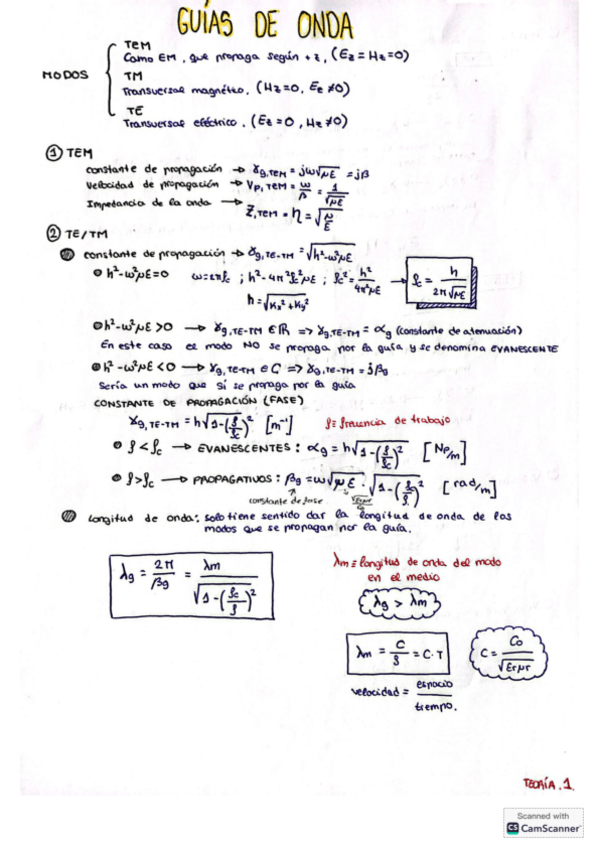 GUÍAS DE ONDA
MODOS
TEM
Como EM, que propaga según +z, (Ez = Hz = 0)
TM
Transversal magnético, (Hz = 0, Ez ≠ 0)
TE
Transversal eléctrico. (Ez = 0, Hz ≠ 0)
① TEM
constante de propagación → γg,TEM = jω√με = jβ
Velocidad de propagación → Vp,TEM = ω/β = 1/√με
Impedancia de la onda → Z,TEM = η = √(μ/ε)
② TE/TM
constante de propagación → γg,TE-TM = √(h²-ω²με)
h²-ω²με = 0 ω = 2πfc ; h²-4π²fc²με ; fc² = h²/4π²με → fc = h/2π√με
h = √(kx²+ky²)
h²-ω²με > 0 → γg,TE-TM ∈ ℝ => γg,TE-TM = αg (constante de atenuación)
En este caso el modo NO se propaga por la guía y se denomina EVANESCENTE
h²-ω²με < 0 → γg,TE-TM ∈ C => γg,TE-TM = jβg
Sería un modo que sí se propaga por la guía
CONSTANTE DE PROPAGACIÓN (FASE)
γg,TE-TM = h√(1-(f/fc)²) [m⁻¹] f ≡ frecuencia de trabajo
f < fc → EVANESCENTES : αg = h√(1-(f/fc)²) [Np/m]
f > fc → PROPAGATIVOS : βg = ω√με · √(1-(fc/f)²) [rad/m]
constante de fase
longitud de onda: solo tiene sentido dar la longitud de onda de los
modos que se propagan por la guía.
λg = 2π/βg = λm/√(1-(fc/f)²)
λm ≡ longitud de onda del modo
en el medio
λg > λm
λm = C/f = C·T
C = Co/√εrμr
velocidad = espacio/tiempo.
TEORÍA.1
Scanned with
CS CamScanner